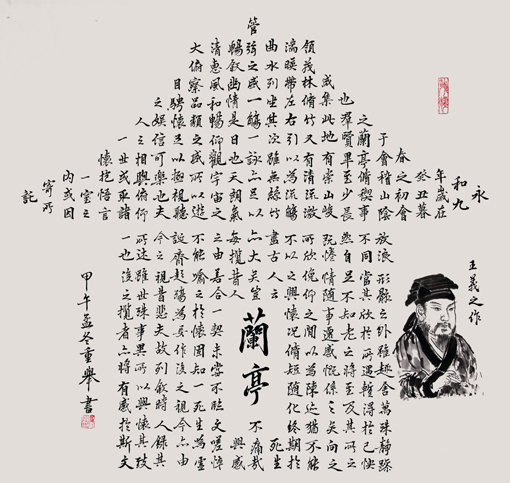 永
和九
年歲在
癸丑暮
春之初會
于會稽山陰
之蘭亭脩稧事
也羣賢畢至少長
咸集此地有崇山峻
領茂林脩竹又有清流激
湍暎帶左右引以為流觴
曲水列坐其次雖無絲竹
管弦之盛一觴一詠亦足以
暢敘幽情是日也天朗氣
清惠風和暢仰觀宇宙之
大俯察品類之盛所以遊
目騁懷足以極視聽
之娛信可樂也夫
人之相與俯仰
一世或取諸
懷抱悟言
一室之
內或因
寄所
託
王羲之作
放浪形骸之外雖趣舍萬殊靜躁
不同當其欣於所遇暫得於己快
然自足不知老之將至及其所之
既惓情隨事遷感慨係之矣向之
所欣俛仰之間以為陳迹猶不能
不以之興懷況脩短隨化終期於
盡古人云
死生
亦大矣豈
不痛哉
每攬昔人
興感
蘭亭
之由若合一契未嘗不臨文嗟悼
不能喻之於懷固知一死生為虛
誕齊彭殤為妄作後之視今亦由
今之視昔悲夫故列敘時人錄其
所述雖世殊事異所以興懷其致
一也後之攬者亦將有感於斯文
甲午孟冬重舉書